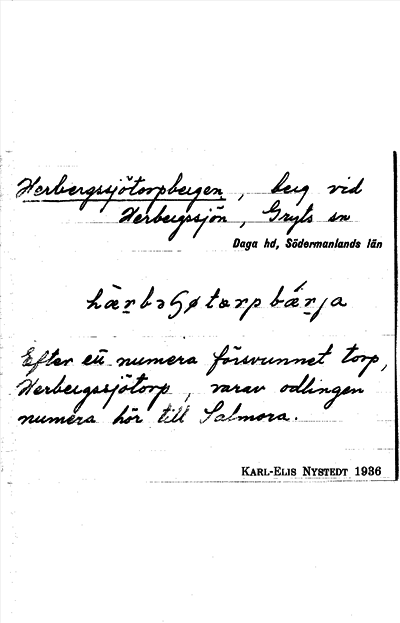 Herbergssjötorpbergen, berg vid
Herbergssjön, Gryts sn
Daga hd, Södermanlands län
Efter ett numera försvunnet torp,
Herbergssjötorp, varav odlingen
numera hör till Salmora.
KARL-ELIS NYSTEDT 1936